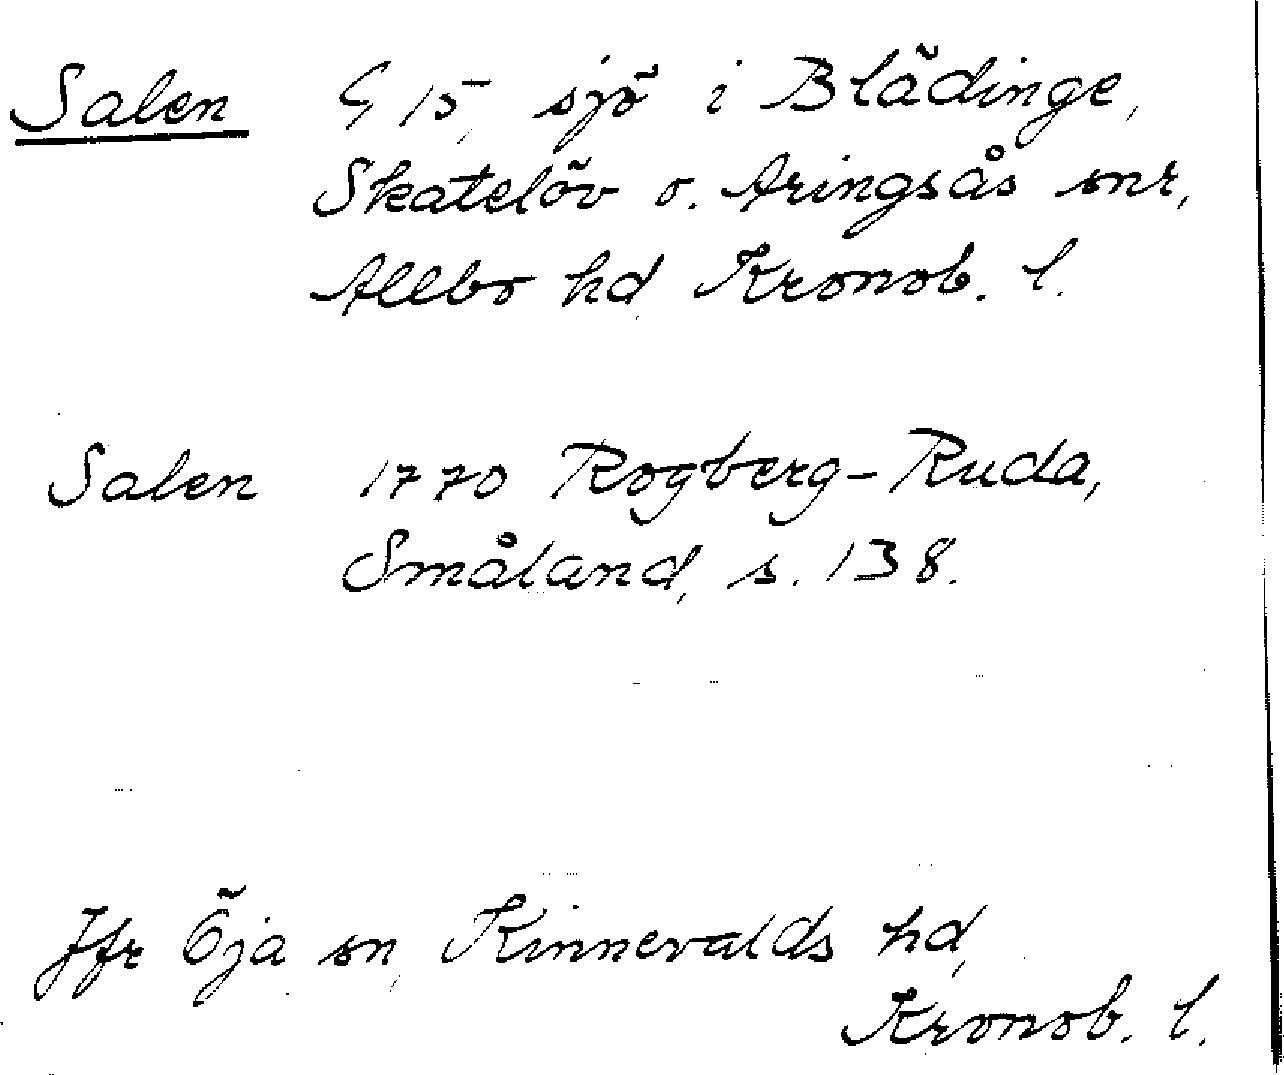 Salen G 15, sjö i Blädinge,
Skatelöv o. Aringsås snr,
Allbo hd, Kronob. l.
Salen 1770 Rogberg-Ruda,
Småland, s. 138.
Jfr Öja sn, Kinnevalds hd,
Kronob. l.